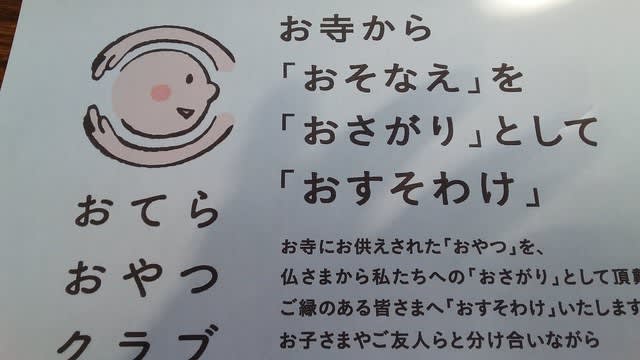 お寺から
「おそなえ」を
「おさがり」として
「おすそわけ」
おてら
おやつ
クラブ
お寺にお供えされた「おやつ」を、
仏さまから私たちへの「おさがり」として頂戴
ご縁のある皆さまへ「おすそわけ」いたします
お子さまやご友人らと分け合いながら